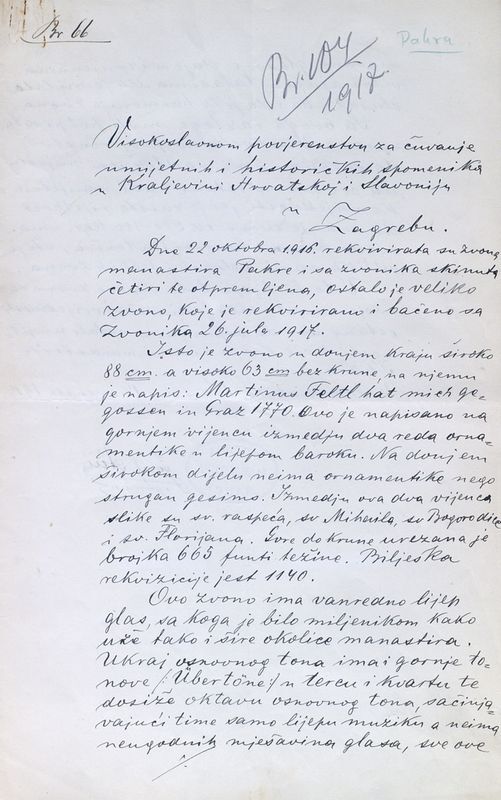 Br 66
Pakra
Br. 104
1917.
Visokoslavnom povjerenstvu za čuvanje
umjetnih i historičkih spomenika
u Kraljevini Hrvatskoj i Slavoniji
u
Zagrebu.
Dne 22 oktobra 1916. rekvirirata su zvona
manastira Pakre i sa zvonika skinuta
četiri te otpremljena, ostalo je veliko
zvono, koje je rekvirirano i bačeno sa
zvonika 26. jula 1917.
Isto je zvono u donjem kraju široko
88 cm. a visoko 63 cm bez krune, na njemu
je napis: Martinus Feltl hat mich ge-
gossen in Graz 1770. Ovo je napisano na
gornjem vijencu izmedju dva reda orna-
mentike u lijepom baroku. Na donjem
širokom dijelu neima ornamentike nego
strugan gesims. Izmedju ova dva vijenca
slike su sv. raspeća, sv Mihaila, sv Bogorodice
i sv. Florijana. Gore do krune urezana je
brojka 665 funti težine. Bilješka
rekvizicije jest 1140.
Ovo zvono ima vanredno lijep
glas, sa koga je bilo miljenikom kako
uže tako i šire okolice manastira.
Ukraj osnovnog tona ima i gornje to-
nove /: Übertöne :/ u tercu i kvartu te
dosiže oktavu osnovnog tona, sačinja-
vajući time samo lijepu muziku a neima
neugodnih mješavina glasa, sve ove